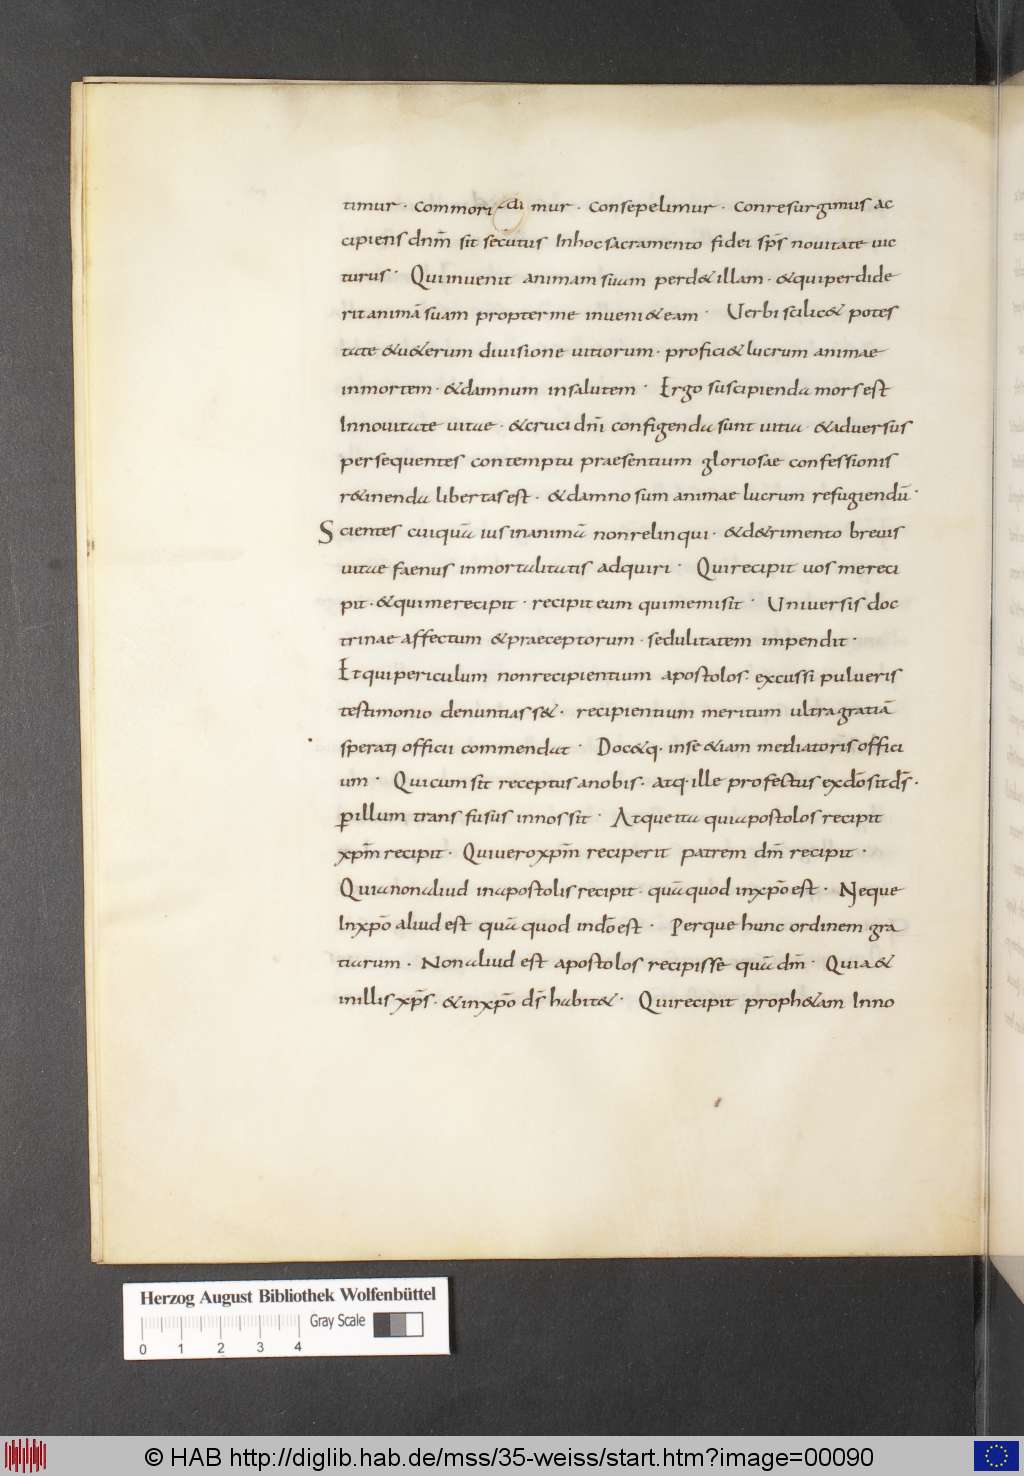 timur · commorimur · consepelimur · conresurgimus ac
cipiens dnm̄ sit secutus Inhocsacramento fidei sp̄s nouitate uic
turus · Quiinuenit animamsuam perd&illam · &quiperdide
ritanimā suam propterme inueni&eam · Uerbi scilic& potes
tate &u&erum diuisione uitiorum · profici&lucrum animae
inmortem · &damnum insalutem · Ergo suscipienda morsest
Innouitate uitae · &cruci dnī configenda sunt uitia · &aduersus
persequentes contemptu praesentium gloriosae confessionis
r&inenda libertasest · &damno sum animae lucrum refugiendū ·
Scientes cuiquā ius inanimā nonrelinqui · &d&rimento breuis
uitae faenus inmortalitatis adquiri · Quirecipit uos mereci
pit · &quimerecipit · recipit eum quimemisit · Uniuersis doc
trinae affectum &praeceptorum · sedulitatem impendit ·
Etquipericulum nonrecipientium apostolos · excussi pulueris
testimonio denuntiass& · recipientium meritum ultragratiā
sperati officii commendat · Doc&q · inse &iam mediatoris offici
um · Quicumsit receptusanobis · atq · ille profectus exdōsitds̄ ·
ꝑillum transfusus innossit · Atqueita quiapostolos recipit
xpm̄recipit · Quiueroxpm̄ reciperit patrem dm̄ recipit ·
Quianonaliud inapostolisrecipit · quāquod inxpōest · Neque
Inxpō aliudest quā quod indōest · Perque hunc ordinem gra
tiarum · Nonaliud est apostolos recipisse quā dm̄ · Quia&
inillis xps̄ · &inxpō ds̄ habit& · Quirecipit proph&am Inno
Herzog August Bibliothek Wolfenbüttel
Gray Scale
0 1 2 3 4
© HAB http://diglib.hab.de/mss/35-weiss/start.htm?image=00090